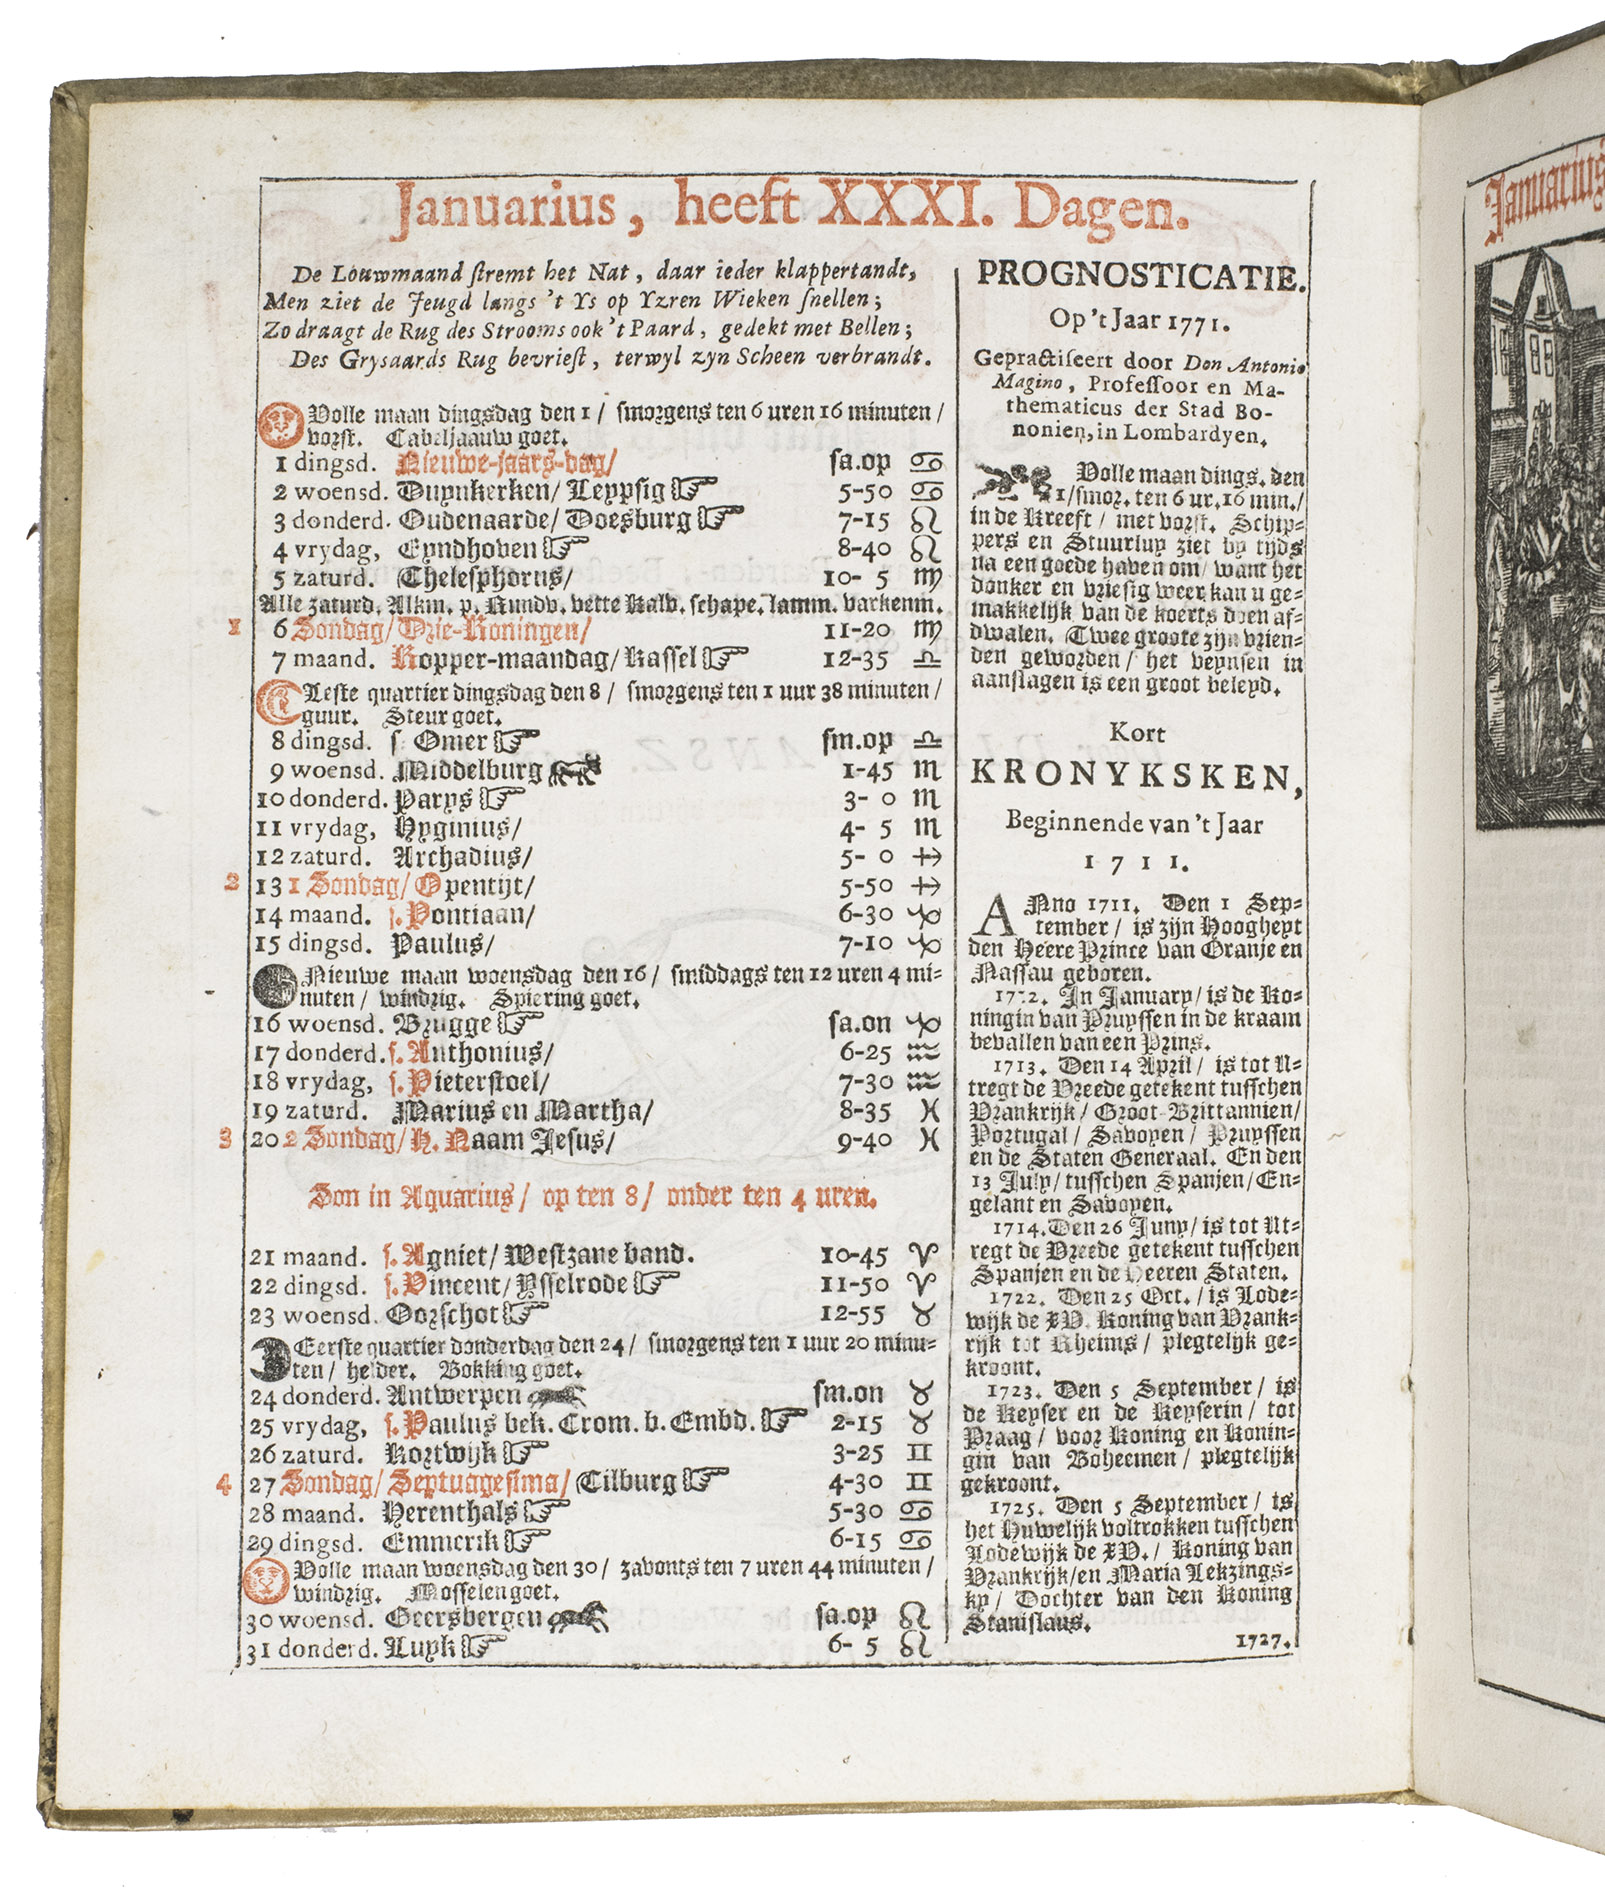 Januarius, heeft XXXI. Dagen.
De Louwmaand stremt het Nat, daar ieder klappertandt,
Men ziet de Jeugd langs 't Ys op Yzren Wieken snellen;
Zo draagt de Rug des Strooms ook 't Paard, gedekt met Bellen;
Des Grysaards Rug bevriest, terwyl zyn Scheen verbrandt.
Volle maan dingsdag den 1/ smorgens ten 6 uren 16 minuten/
vorst. Cabeljaauw goet.
1 dingsd. Nieuwe-jaars-dag/ sa.op ♋
2 woensd. Duynkerken/ Leypsig ☞ 5-50 ♋
3 donderd. Oudenaarde/ Doesburg ☞ 7-15 ♌
4 vrydag, Eyndhoven ☞ 8-40 ♌
5 zaturd. Thelesphorus/ 10- 5 ♍
Alle zaturd. Alkm. p. Rundv. vette Kalv. schape. lamm. varkenm.
1 6 Sondag/ Drie-Koningen/ 11-20 ♍
7 maand. Kopper-maandag/ Kassel ☞ 12-35 ♎
Leste quartier dingsdag den 8/ smorgens ten 1 uur 38 minuten/
guur. Steur goet.
8 dingsd. s. Omer ☞ sm.op ♎
9 woensd. Middelburg 1-45 ♏
10 donderd. Parys ☞ 3- 0 ♏
11 vrydag, Hyginius/ 4- 5 ♏
12 zaturd. Archadius/ 5- 0 ♐
2 13 1 Sondag/ Opentijt/ 5-50 ♐
14 maand. s. Pontiaan/ 6-30 ♑
15 dingsd. Paulus/ 7-10 ♑
Nieuwe maan woensdag den 16/ smiddags ten 12 uren 4 mi-
nuten/ windrig. Spiering goet.
16 woensd. Brugge ☞ sa.on ♑
17 donderd. s. Anthonius/ 6-25 ♒
18 vrydag, s. Pieterstoel/ 7-30 ♒
19 zaturd. Marius en Martha/ 8-35 ♓
3 20 2 Sondag/ H. Naam Jesus/ 9-40 ♓
Son in Aquarius/ op ten 8/ onder ten 4 uren.
21 maand. s. Agniet/ Westzane band. 10-45 ♈
22 dingsd. s. Vincent/ Ysselrode ☞ 11-50 ♈
23 woensd. Oorschot ☞ 12-55 ♉
Eerste quartier donderdag den 24/ smorgens ten 1 uur 20 minu-
ten/ helder. Bokking goet.
24 donderd. Antwerpen sm.on ♉
25 vrydag, s. Paulus bek. Crom. b. Embd. ☞ 2-15 ♉
26 zaturd. Kortwijk ☞ 3-25 ♊
4 27 Sondag/ Septuagesima/ Tilburg ☞ 4-30 ♊
28 maand. Herenthals ☞ 5-30 ♋
29 dingsd. Emmerik ☞ 6-15 ♋
Volle maan woensdag den 30/ zavonts ten 7 uren 44 minuten/
windrig. Mosselen goet.
30 woensd. Geersbergen sa.op ♌
31 donderd. Luyk ☞ 6- 5 ♌
PROGNOSTICATIE.
Op 't Jaar 1771.
Gepractiseert door Don Antonio
Magino, Professoor en Ma-
thematicus der Stad Bo-
nonien, in Lombardyen.
Volle maan dings. den
1/smor. ten 6 ur. 16 min./
in de Kreeft/ met vorst. Schip-
pers en Stuurluy ziet by tijds
na een goede haven om/ want het
donker en vriesig weer kan u ge-
makkelijk van de koerts doen af-
dwalen. Twee groote zijn vrien-
den geworden/ het veynsen in
aanslagen is een groot beleyd.
Kort
KRONYKSKEN,
Beginnende van 't Jaar
1711.
ANno 1711. Den 1 Sep-
tember/ is zijn Hoogheyt
den Heere Prince van Oranje en
Nassau geboren.
1712. In January/ is de Ko-
ningin van Pruyssen in de kraam
bevallen van een Prins.
1713. Den 14 April/ is tot U-
tregt de Vreede getekent tusschen
Vrankrijk/ Groot-Brittannien/
Portugal/ Savoyen/ Pruyssen
en de Staten Generaal. En den
13 July/ tusschen Spanjen/ En-
gelant en Savoyen.
1714. Den 26 Juny/ is tot Ut-
regt de Vreede getekent tusschen
Spanjen en de Heeren Staten.
1722. Den 25 Oct./ is Lode-
wijk de XV. Koning van Vrank-
rijk tot Rheims/ plegtelijk ge-
kroont.
1723. Den 5 September/ is
de Keyser en de Keyserin/ tot
Praag/ voor Koning en Konin-
gin van Boheemen/ plegtelijk
gekroont.
1725. Den 5 September/ is
het Huwelijk voltrokken tusschen
Lodewijk de XV./ Koning van
Vrankrijk/en Maria Lekzings-
ky/ Dochter van den Koning
Stanislaus.
1727.
Januarius